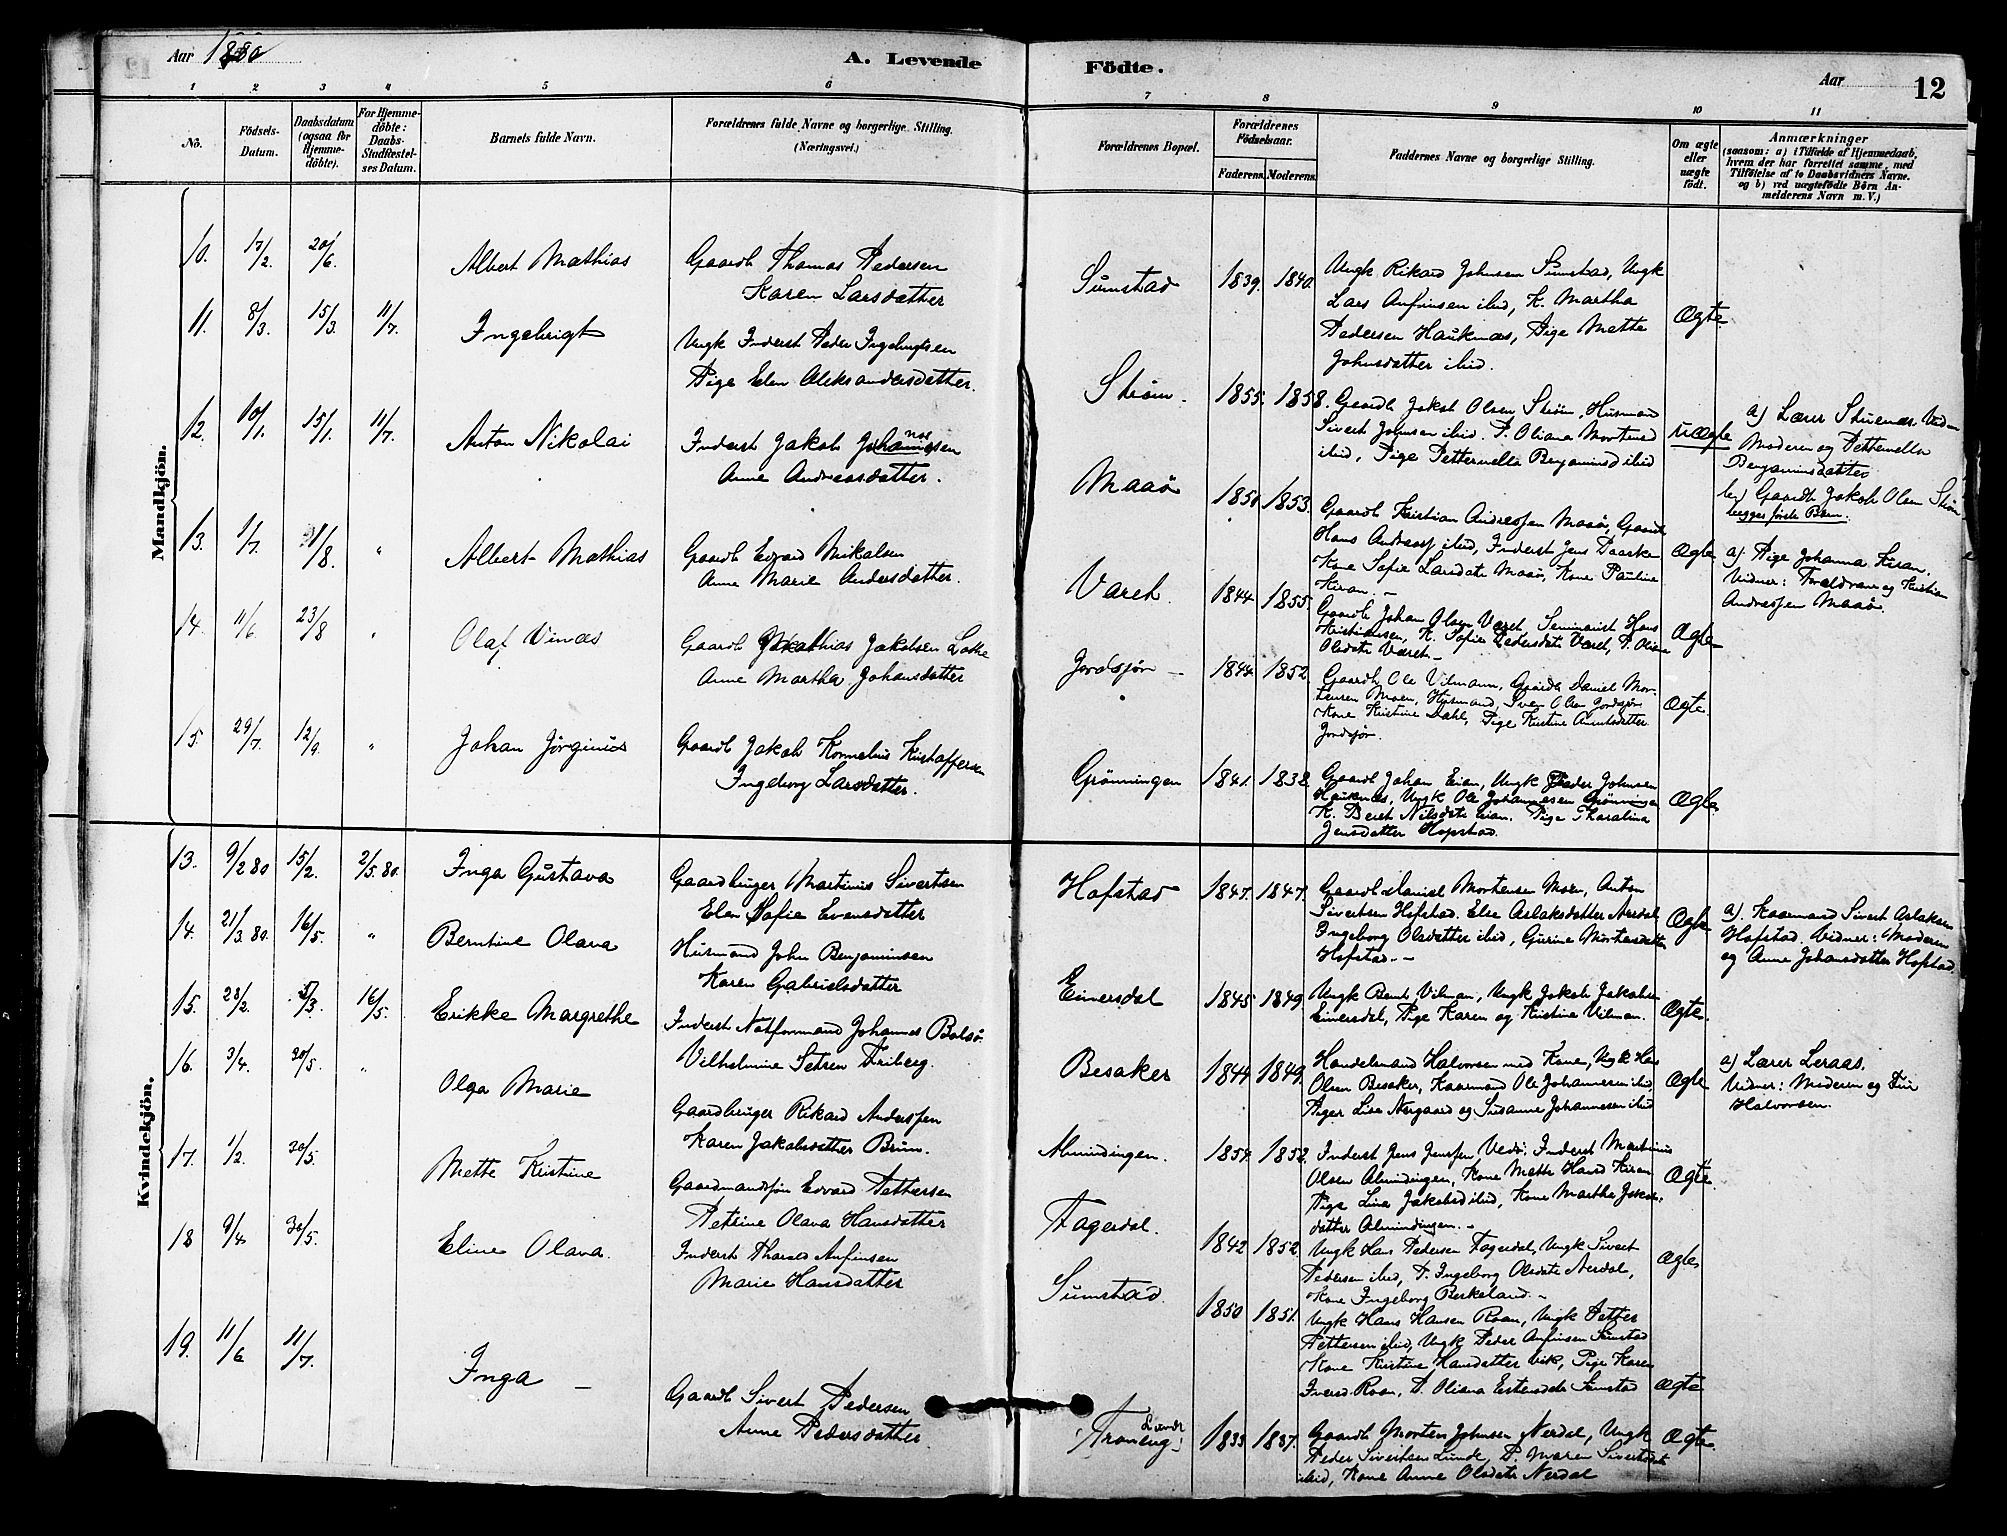 Aar 1880
A. Levende
Födte.
Aar
12
1 2 3 4 5 6 7 8 9 10 11
No.
Födsels-Datum.
Daabsdatum (ogsaa for Hjemme-döbte).
For Hjemme-döbte: Daabs-Stadfæstel-ses Datum.
Barnets fulde Navn.
Forældrenes fulde Navne og borgerlige Stilling.
(Næringsvei.)
Forældrenes Bopæl.
Forældrenes Födselsaar.
Faderens. Moderens.
Faddernes Navne og borgerlige Stilling.
Om ægte eller uægte födt.
Anmærkninger
(saasom: a) i Tilfælde af Hjemmedaab, hvem der har forrettet samme, med Tilföielse af to Daabsvidners Navne, og b) ved uægtefödte Börn An-melderens Navn m. V.)
Mandkjön.
10. 17/2. 20/6. Albert Mathias
Gaardb Thomas Pedersen
Karen Larsdatter
Sumstad 1839. 1840.
Ungk Rikard Johnsen Sumstad, Ungk
Lars Anfinsen ibid, K. Martha
Pedersen Hauknæs, Pige Mette
Johnsdatter ibid.
Ægte
11. 8/3. 15/3. 11/7. Ingebrigt
Ungk Inderst Peder Ingebrigtsen
Pige Elen Aleksandersdatter.
Strøm. 1855. 1858.
Gaardb Jakob Olsen Strøm, Husmand
Sivert Johnsen ibid. P. Oliana Mortensd
ibid, Pige Petternella Benjaminsd ibid
Uægte
a) Lærer Stuenæs. Vidn
Moderen og Petternella
Benjaminsdatter
b) Gaardb Jakob Olsen Strøm
begges første Barn.
12. 10/1. 15/1. 11/7. Anton Nikolai
Inderst Jakob Johannesen
Anne Andreasdatter.
Maaø 1850 1853.
Gaardb Kristian Andreassen Maaø, Gaardb
Hans Andreass ibid, Inderst Jens Daarske
Kone Sofie Larsdatr Maaø, Kone Pauline
Kiran. -
Ægte
a). Pige Johanna Kiran.
Vidner: Forældrene og Kristian
Andreassen Maaø.
13. 1/7. 1/8. " Albert Mathias
Gaardb Edvard Mikalsen
Anne Marie Andersdatter.
Varet. 1844. 1855.
Gaardb Johan Olsen Varet, Seminarist Hans
Kristiansen, K. Sofie Pedersdatr Varet, P. Oliana
Olsdatr Varet -
Ægte
14. 11/6. 23/8 " Olaf Vinæs
Gaardb Mathias Jakobsen Lothe
Anne Martha Johansdatter
Jordsjør - 1844 1852
Gaardb Ole Vilmann, Gaardb Daniel Mor-
tensen Moen, Husmand Sven Olsen Jordsjør
Kone Kristine Dahl, Pige Kristine Arntsdatter
Jordsjør.
Ægte.
15. 29/7. 12/9. " Johan Jørginius
Gaardb Jakob Kornelius Kristoffersen
Ingeborg Larsdatter.
Grønningen 1841. 1838
Gaardb Johan Eian, Ungk Peder Johnsen
Hauknæs, Ungk Ole Johannesen Grønningen
K. Beret Nilsdatr Eian. Pige Tharalina
Jensdatter Hopstad.
Ægte.
Kvindekjön.
13. 9/2 80 15/2. 2/5. 80. Inga Gustava
Gaardbruger Martinus Sivertsen
Elen Sofie Evensdatter
Hofstad 1847. 1847.
Gaardb Daniel Mortensen Moen, Anton
Sivertsen Hofstad. Else Aslaksdatter Nerdal
Ingeborg Olsdatter ibid, Gurine Mortensdatter
Hofstad. -
Ægte
a). Kaarmand Sivert Aslaksen
Hofstad. Vidner: Moderen
og Anne Johansdatter Hofstad.
14. 21/3. 80. 16/5. " Berntine Olava
Husmand John Benjaminsen
Karen Gabrielsdatter
Einersdal 1845 1849
Ungk Bernt Vilman, Ungk Jakob Jakobsen
Einersdal, Pige Karen og Kristine Vilman.
Ægte.
15. 28/2. 5/3. 16/5. Erikke Margrethe
Inderst Notformand Johannes Bolsø
Vilhelmine Setren Friberg.
Besaker 1844 1849
Handelsmand Halvorsen med Kone, Ungk Hans
Olsen Besaker, Kaarmand Ole Johannessen ibid,
Piger Lise Nergaard og Susanne Johannesen ibid
Ægte
a) Lærer Leraas.
Vidner: Moderen og Fru
Halvorsen.
16. 3/4. 30/5. " Olga Marie
Gaardbruger Rikard Anderssen
Karen Jakobsdatter Bruun.
Almindingen. 1854. 1852.
Inderst Jens Jenssen Vedø. Inderst Martinus
Olsen Almindingen, Kone Mette Hansd Kiran
Pige Lina Jakobsd ibid, Kone Martha Jakobs
datter Almindingen. -
Ægte
17. 1/2. 30/5. Mette Kristine
Gaardmandssøn Edvard Pettersen
Petrine Olava Hansdatter
Fagerdal. 1842 1852
Ungk Hans Pedersen Fagerdal, Ungk Sivert
Pedersen ibid, P. Ingeborg Olsdatr Nerdal,
Kone Ingeborg Berkeland. -
Ægte
18 9/4 30/5. Eline Olava.
Inderst Thomas Anfinsen
Marie Hansdatter
Sumstad. 1850 1851.
Ungk Hans Hansen Roan, Ungk Petter
Pettersen ibid, Ungk Peder Anfinsen Sumstad
Kone Kristine Hansdatter Vik, Pige Karen
Iversd. Roan, P. Oliana Estensdatr Sumstad
Ægte
19. 11/6 11/7. Inga -
Gaardb Sivert Pedersen
Anne Pedersdatter.
Lunde
Troneng 1833 1837.
Gaardb Morten Johnsen Nerdal, Ungk
Peder Sivertsen Lunde, P. Maren Sivertsdatr
ibid, Kone Anne Olsdatr Nerdal
Ægte